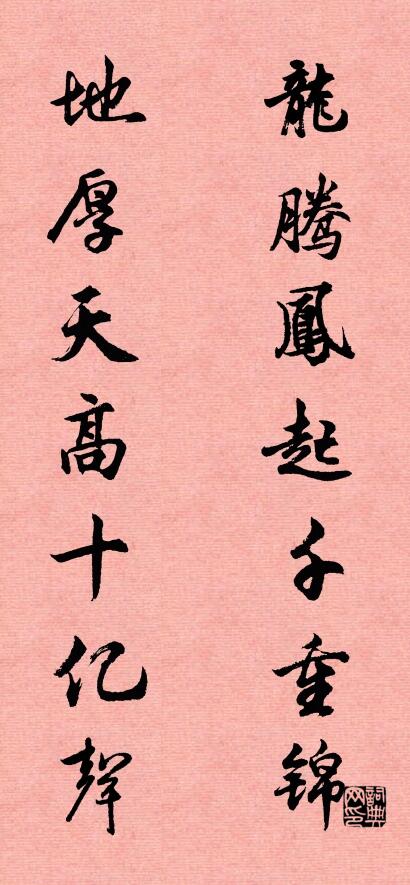 龍騰鳳起千重锦
地厚天高十亿聲
詞典网印